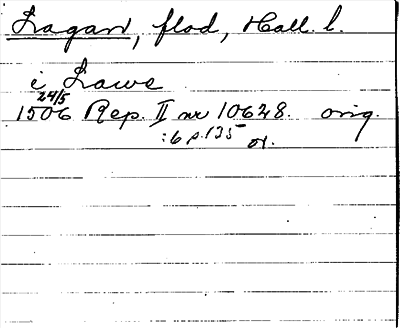 Lagan, flod, Hall. l.
i Lawe
24/5
1506 Rep. II nr 10628. orig.
:6 p. 135 or.